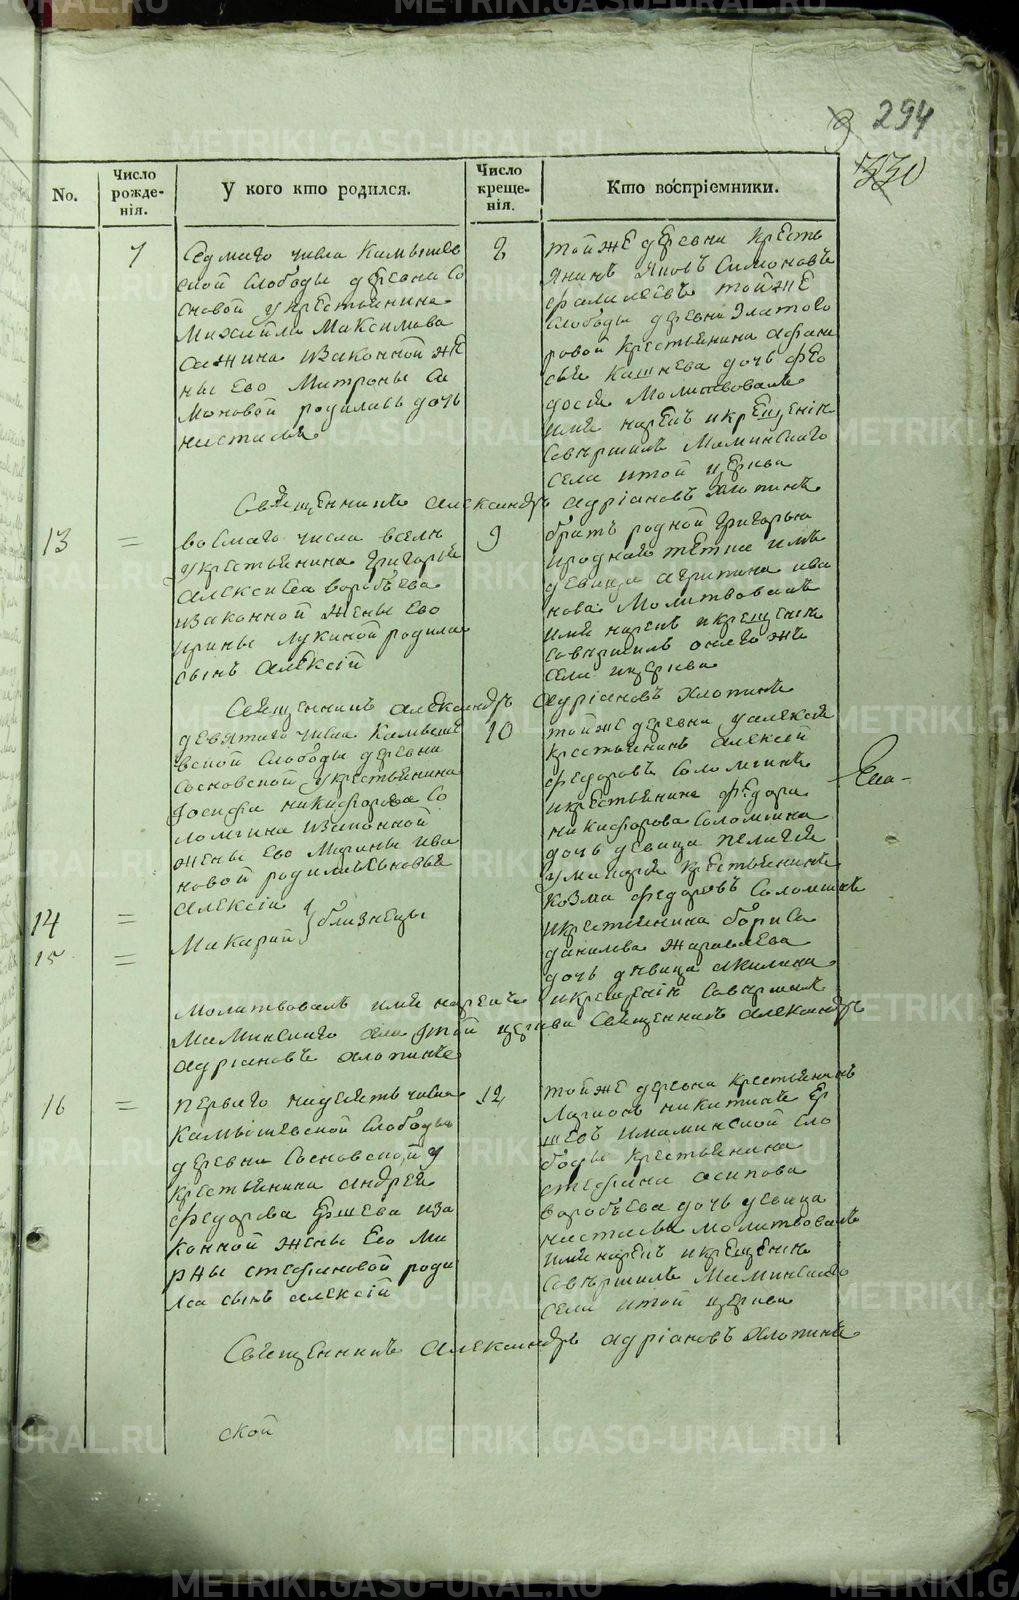 294
330
No.
Число рожденія.
У кого кто родился.
Число крещенія.
Кто воспріемники.
7
Седмаго числа Камышев
ской Слободы деревни Со
сновой у крестьянина
Михаила Максимова
Сажина изаконной же
ны Ево Матроны Си
моновой родилась дочь
8
той же деревни кресть
янинъ Яковъ Симоновъ
той же
слободы деревни Златого
ровой крестьянина Афана
сья дочь Фео
досья Молитвовалъ
имя нарекъ и крещеніе
совершилъ Маминскаго
села и той церкви
Священникъ Александръ Адріановъ Хлопинъ
13
=
восмаго числа в селе
у крестьянина Григорья
Алексеева Воробьева
изаконной жены Ево
Ирины Лукиной родился
сынъ Алексій
9
братъ родной Григорья
девица Агрипина Ива
нова Молитвовалъ
имя нарекъ и крещеніе
совершилъ оного же
села и церкви
Священникъ Александръ Адріановъ Хлопинъ
девятаго числа Камыше
вской Слободы деревни
Сосновской у крестьянина
Іосифа Никифорова Со
ломгина изаконной
жены Ево Марины Ива
новой родились новые
14
=
Алексій
15
=
Макарий } близнецы
10
той же деревни у Алексея
крестьянинъ Алексей
Федоровъ Соломгинъ
и крестьянина Федора
Никифорова Соломгина
дочь девица Пелагея
у Макарія крестьянинъ
Козма Федоровъ Соломгинъ
и крестьянина Бориса
Данилова Жаравлева
дочь девица Акилина
Молитвовалъ имя нарекъ и крещеніе совершилъ
Маминскаго села и той церкви Священникъ Александръ
Адріановъ Хлопинъ
16
=
перваго надесять числа
Камышевской Слободы
деревни Сосновской у
крестьянина Андрея
Федорова Ершева иза
конной жены Ево Ма
рьи Стефановой роди
лса сынъ Алексій
12
той же деревни крестьянинъ
Ларионъ Никитинъ Ер
шевъ и Маминской сло
боды крестьянина
Стефана Осипова
Воробьева дочь девица
Настасья Молитвовалъ
имя нарекъ и крещеніе
совершилъ Маминскаго
села и той церкви
Священникъ Александръ Адріановъ Хлопинъ
ской
METRIKI.GASO-URAL.RU